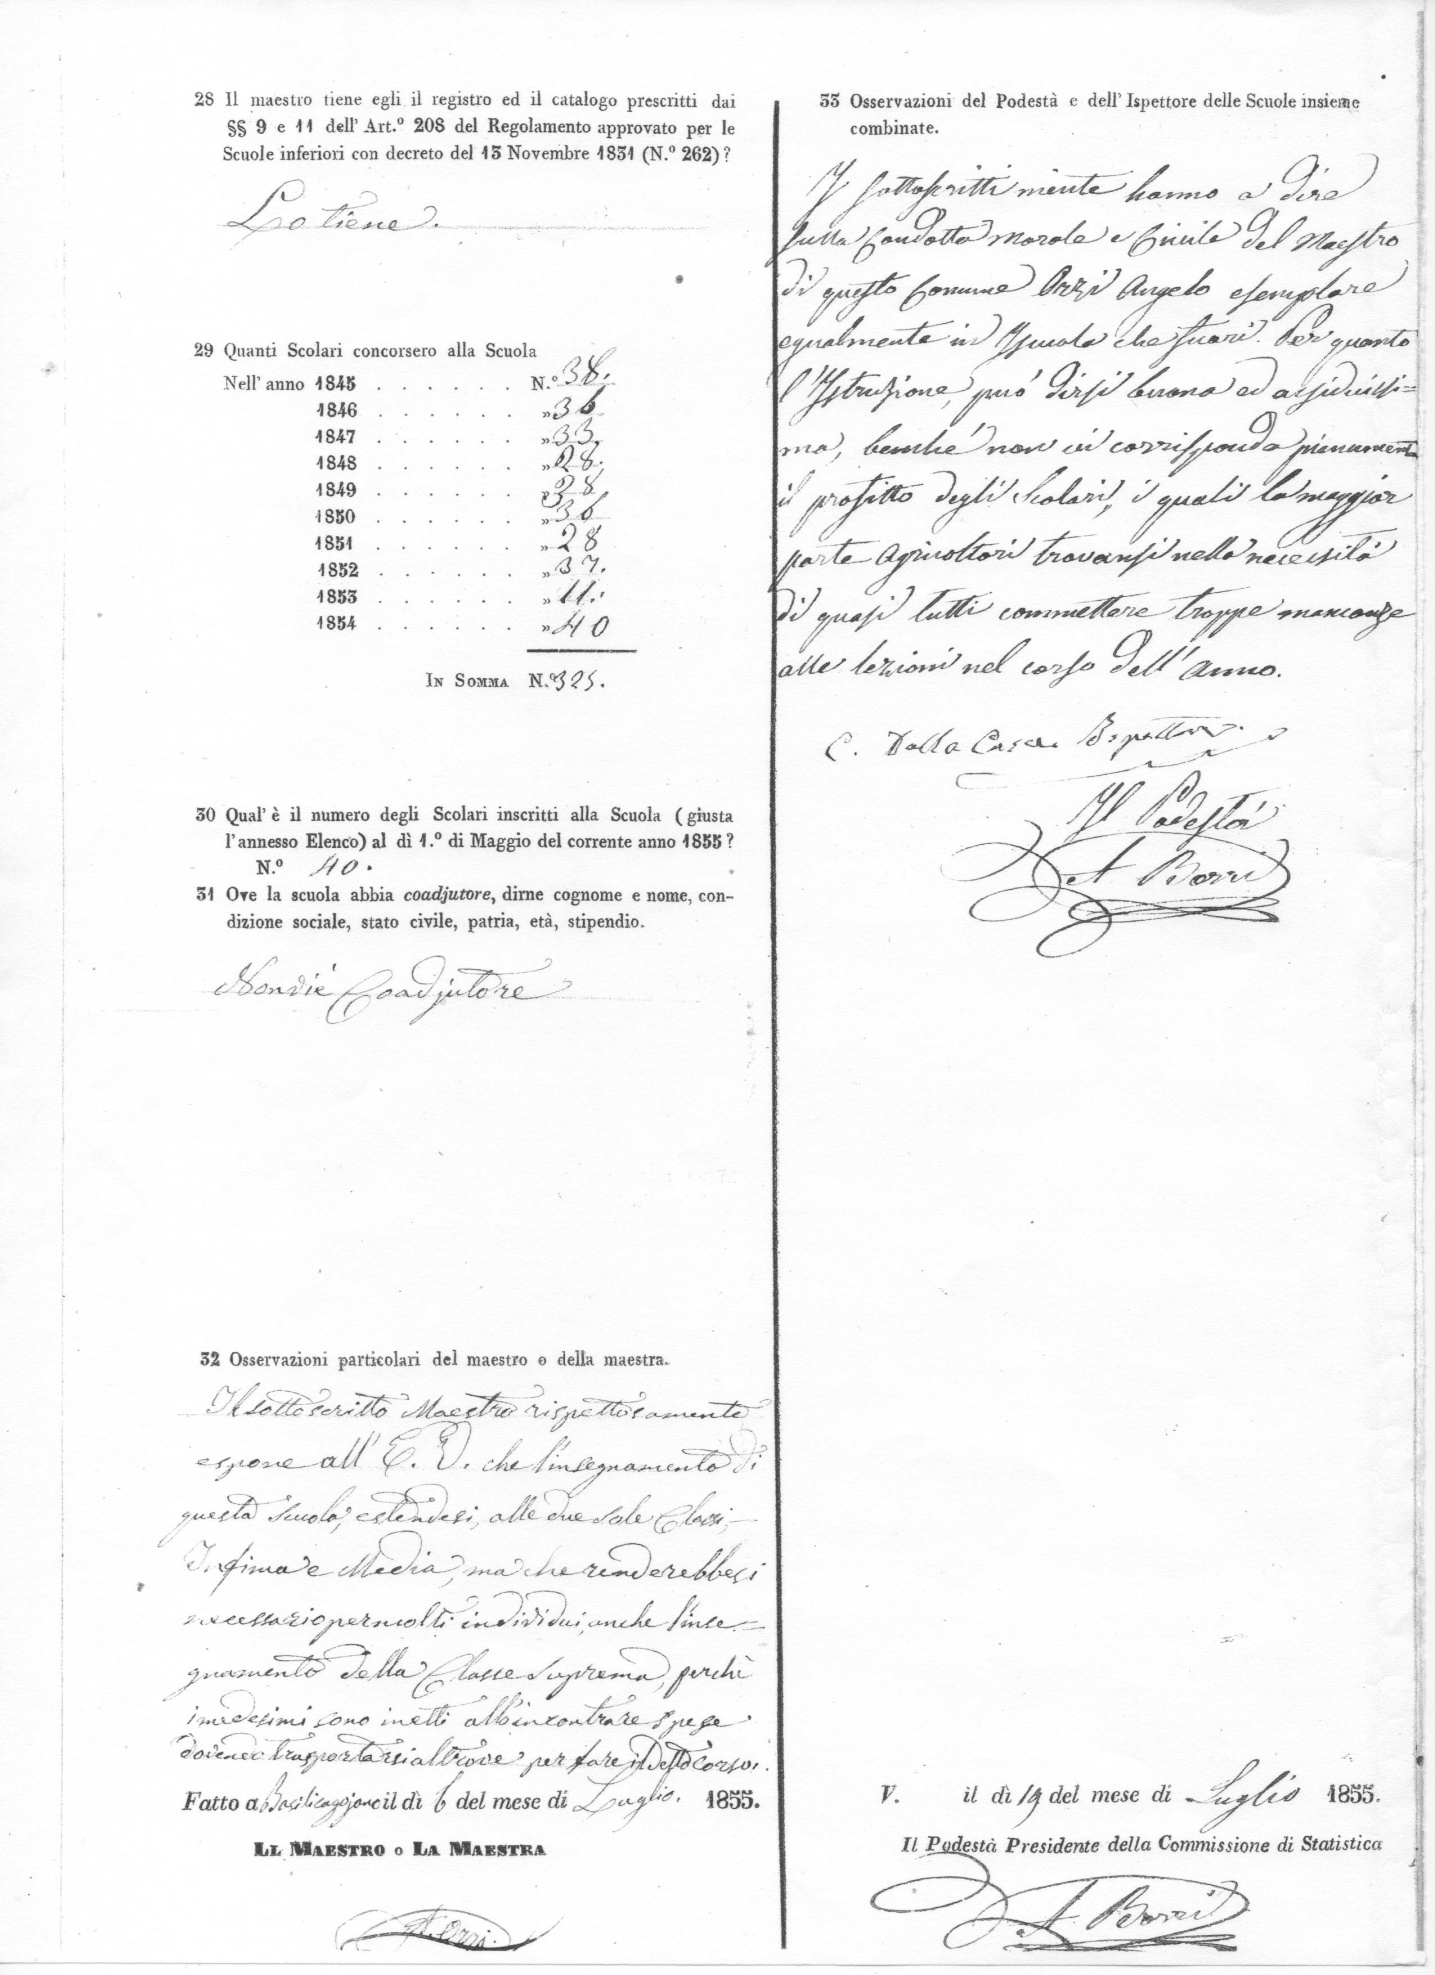 28 Il maestro tiene egli il registro ed il catalogo prescritti dai
§§ 9 e 11 dell' Art.º 208 del Regolamento approvato per le
Scuole inferiori con decreto del 13 Novembre 1831 (N.º 262)?
Lo tiene.
29 Quanti Scolari concorsero alla Scuola
Nell' anno 1845 . . . . . . N.º 38.
1846 . . . . . . » 36
1847 . . . . . . » 33,
1848 . . . . . . » 28.
1849 . . . . . . 28
1850 . . . . . . » 36
1851 . . . . . . » 28
1852 . . . . . . » 37.
1853 . . . . . . »
1854 . . . . . . » 40
In Somma N.º 325.
30 Qual' è il numero degli Scolari inscritti alla Scuola (giusta
l'annesso Elenco) al dì 1.º di Maggio del corrente anno 1855?
N.º 40.
31 Ove la scuola abbia coadjutore, dirne cognome e nome, con-
dizione sociale, stato civile, patria, età, stipendio.
Non vi è Coadjutore
32 Osservazioni particolari del maestro o della maestra.
Il sottoscritto Maestro rispettosamente
espone all' E. V. che l'insegnamento di
questa scuola, estendesi, alle due sole Classi,
Infima e Media, ma che renderebbesi
necessario per molti individui, anche l'inse=
gnamento della Classe Suprema, perchè
i medesimi sono inetti all'incontrare spese
dovendo trasportarsi altrove per fare il detto corso.
Fatto a Basilicagojano il dì 6 del mese di Luglio. 1855.
Ll Maestro o La Maestra
A. Orzi.
33 Osservazioni del Podestà e dell' Ispettore delle Scuole insieme
combinate.
I sottoscritti niente hanno a dire
sulla Condotta morale e Civile del Maestro
di questo Comune Orzi Angelo esemplare
egualmente in Iscuola che fuori. Per quanto
l'Istruzione, può dirsi buona ed assiduissi=
ma, benché non vi corrisponda pienamente
il profitto degli Scolari, i quali la maggior
parte Agricoltori trovansi nella necessità
di quasi tutti commettere troppe mancanze
alle lezioni nel corso dell' Anno.
C. Dalla Casa Ispettore
Il Podestà
A Borri
V. il dì 19 del mese di Luglio 1855.
Il Podestà Presidente della Commissione di Statistica
A. Borri